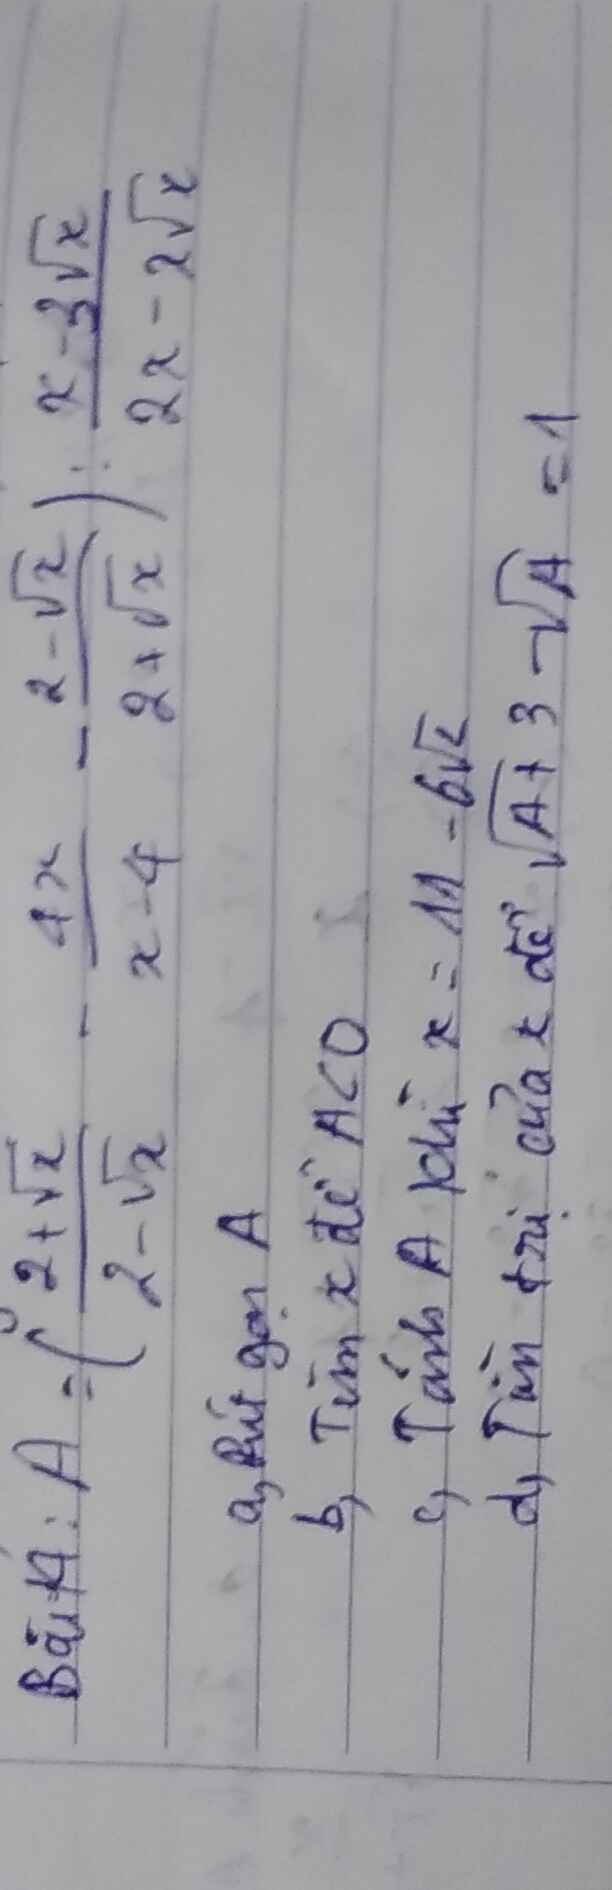 Bài 14: A = ( (2+√x)/(2-√x) - 4x/(x-4) - (2-√x)/(2+√x) ) : (x-3√x)/(2x-2√x)
a, Rút gọn A
b, Tìm x để A<0
c, Tính A khi x = 11 - 6√2
d, Tìm trị của x để √A+3 - √A = 1